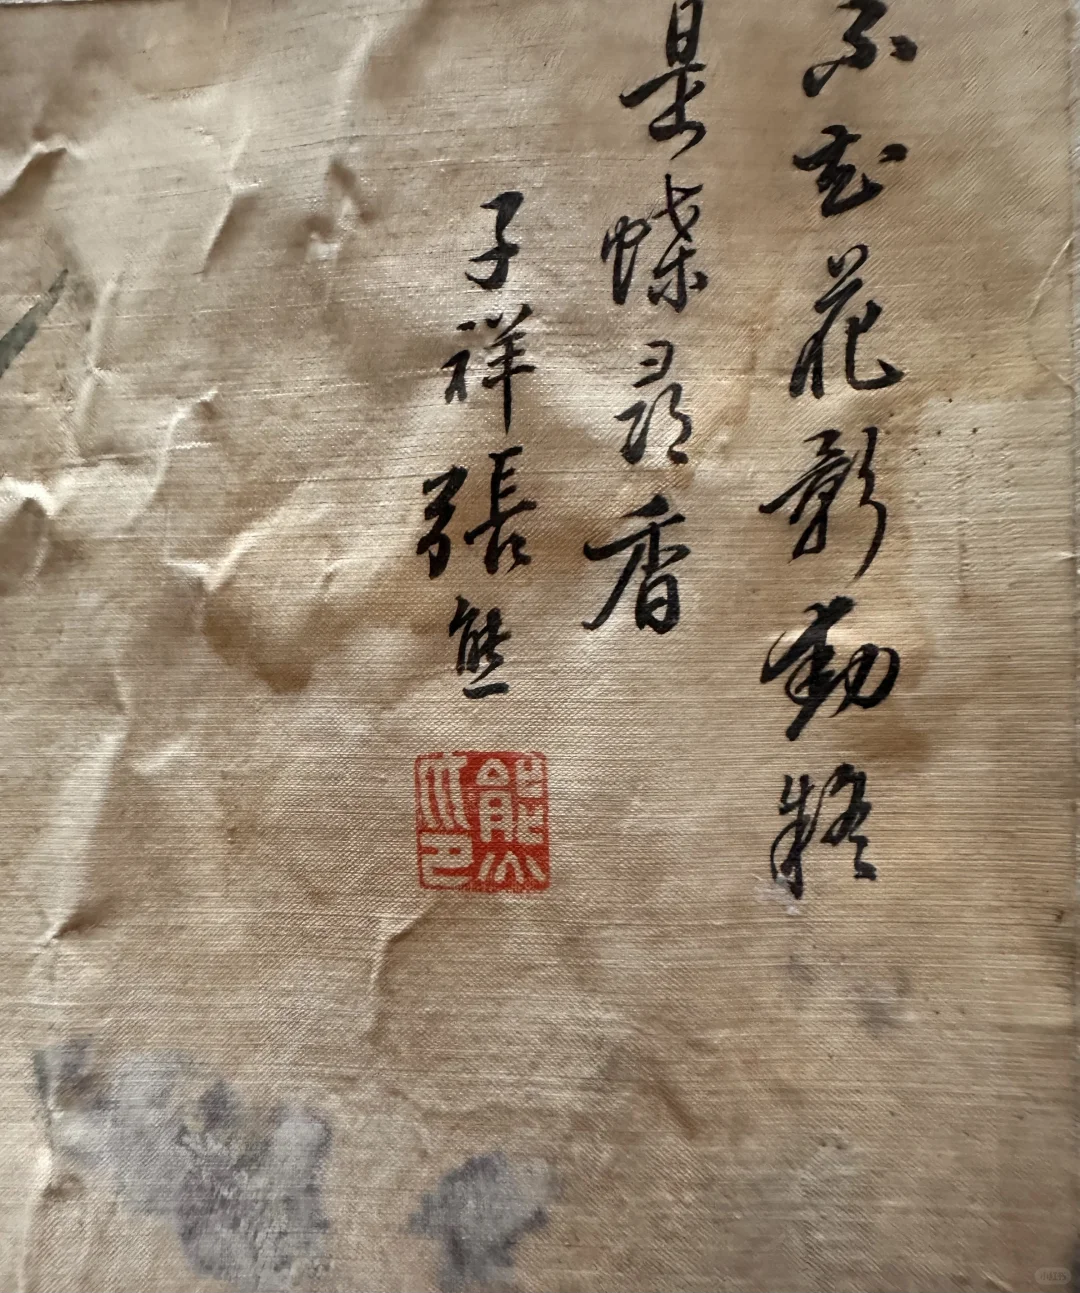 不知花影動疑
是蝶尋香
子祥張熊
熊